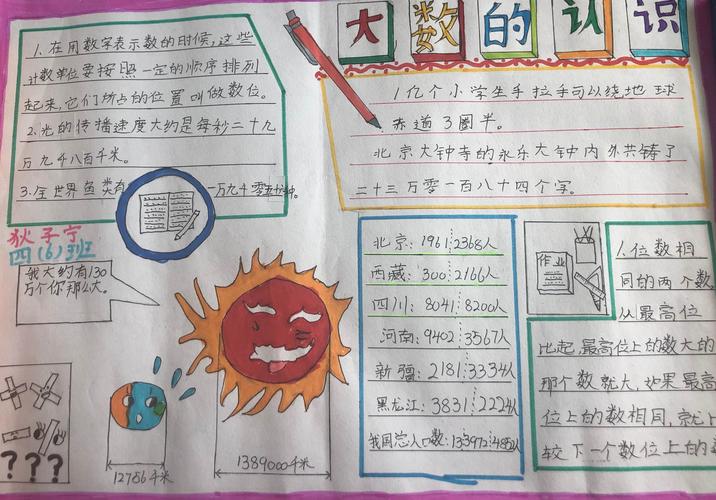 大数的认识
1.在用数字表示数的时候,这些
计数单位要按照一定的顺序排列
起来,它们所占的位置叫做数位。
2.光的传播速度大约是每秒二十九
万九千八百千米。
3.全世界鱼类有
一万九千零五十种。
1亿个小学生手拉手可以绕地球
赤道3圈半。
北京大钟寺的永乐大钟内外共铸了
二十三万零一百八十四个字。
狄子宁
四(6)班
我大约有130
万个你那么大。
12756千米
1389000千米
???
北京:19612368人
西藏:3002166人
四川:80418200人
河南:94023567人
新疆:21813334人
黑龙江:38312224人
我国总人口数:1339724852人
作业
1.位数相
同的两个数
从最高位
比起,最高位上的数大的
那个数就大,如果最高
位上的数相同,就
较下一个数位上的